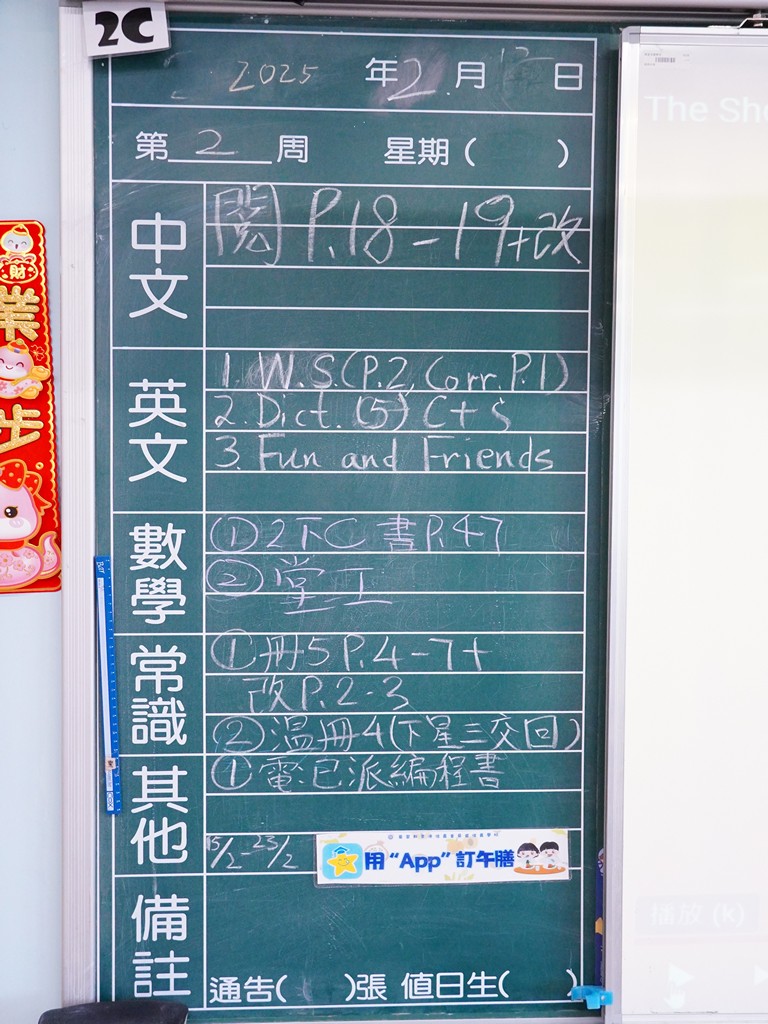 2C
2025 年 2 月 日
第 2 周 星期( )
財
業
步
中文
閱 P.18-19+改
英文
1. W.S.(P.2, Corr. P.1)
2. Dict. (5) C+S
3. Fun and Friends
數學
① 2下C 書P.47
② 堂工
常識
① 冊5 P.4-7+
改P.2-3
② 溫冊4(下星三交回)
其他
① 電:已派編程書
15/2-23/2
用“App”訂午膳
備註
通告( )張 值日生( )
The Sho
播放 (K)